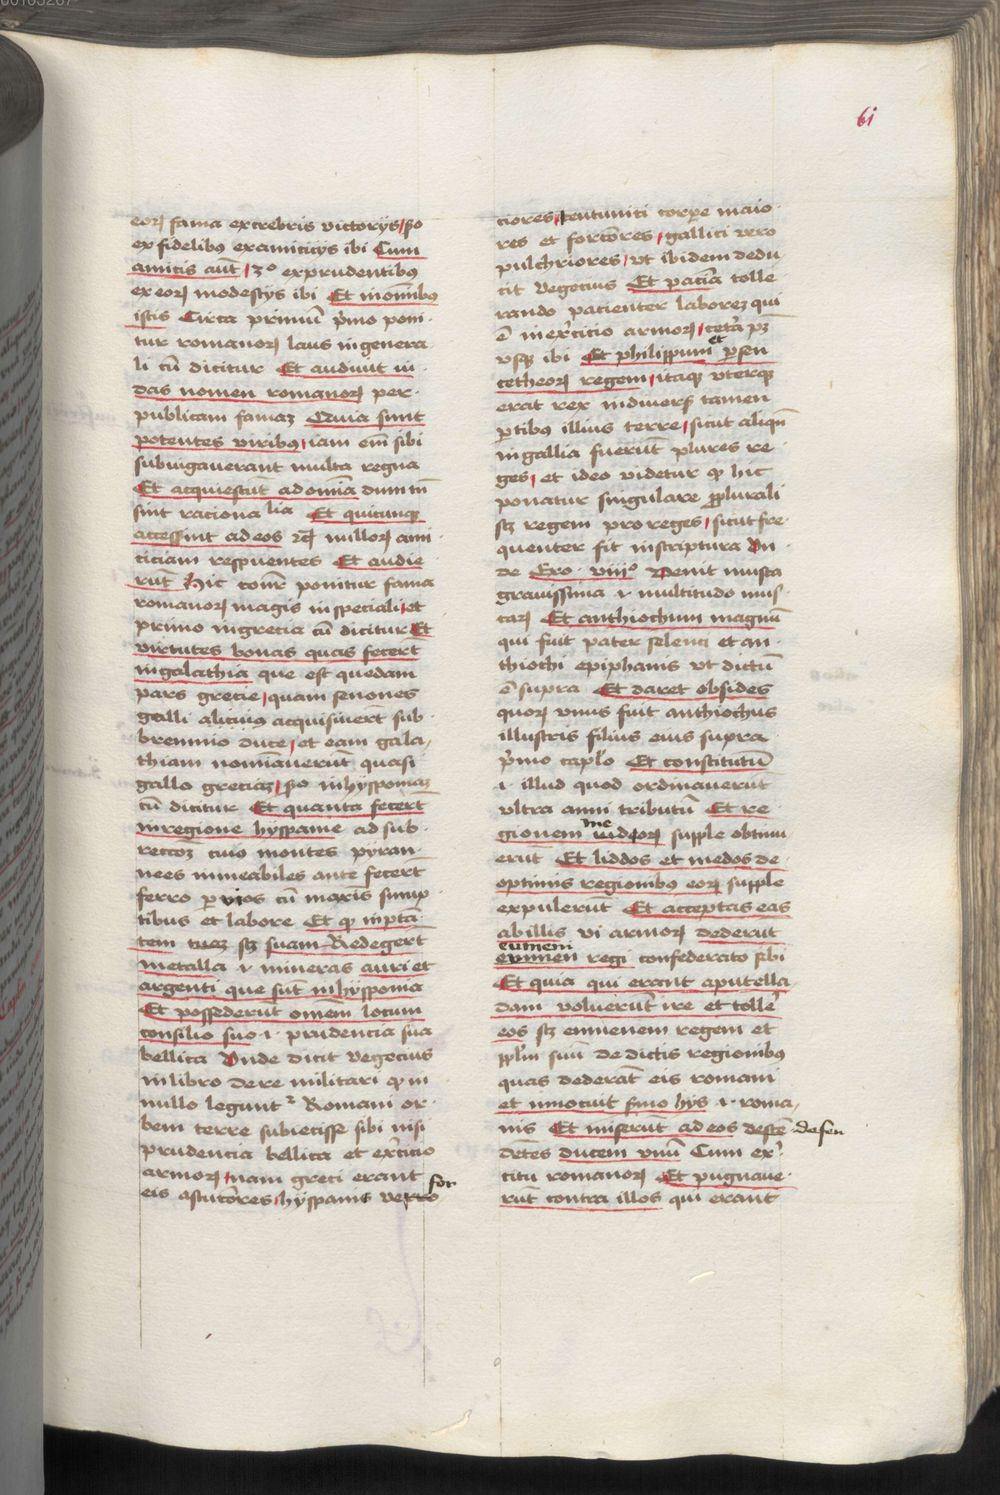 61
eoꝝ fama ex crebris victorijs / so
ex fidelibꝰ ex amicicijs ibi Cum
amicis aut̄ / 3º ex prudentibꝰ
ex eoꝝ modestijs ibi Et in om̄ibꝰ
istis Circa primū p̄mo poni
tur romanoꝝ laus in genera
li cū dicitur Et audiuit iu
das nomen romanoꝝ per
publicam famaz Quia sunt
potentes viribꝰ / iam em̄ sibi
subiugauerant multa regna
Et acquiescūt ad om̄ia dum tn̄
sint racionalia Et quicunqꝫ
accesſint ad eos nulloꝝ ami
ciciam respuentes Et audie
rūt Hic ponitur fama
romanoꝝ magis in speciali / et
primo in grecia cū dicitur Et
virtutes bonas quas fecer̄t
in galathia que est quedam
pars grecie / quam senones
galli alicuiꝰ acquisiuer̄t sub
brennio duce / et eam gala
thiam nominauerūt quasi
gallo greciaz / so in hysponiaz
cū dicitur Et quanta fecer̄t
in regione hyspanie ad sub
montes pyran
nees inmeabiles ante fecer̄t
ferro ꝑuios cū maxīs sump
tibus et labore Et ꝙ in ptā
tem suam Redeger̄t
metalla .i. mineras auri et
argenti que sūt in hysponia
Et possederūt om̄em locum
consilio suo .i. prudencia sua
bellica Vnde dicit vegecius
in libro de re militari ꝙ in
nullo legunt᷑ Romani or
bem terre subiecisse sibi nisi
prudencia bellica et ex̄citio
armoꝝ / nam greci erant
eis astuciores / hyspanis verro for
ciores / corpe maio
res et forciores / gallici vero
pulchriores / vt ibidem dedu
cit vegecius Et pacīa tolle
rando pacienter laborez qui
ē in ex̄citio armoꝝ / cetā pꝫ
vsqꝫ ibi Et philippum et persen
cetheoꝝ regem / itaqꝫ vterqꝫ
erat rex in diuers̄ tamen
ꝑtibꝰ illius terre / sicut aliqn̄
in gallia fuerūt plures re
ges / et ideo videtur ꝙ hic
ponatur singulare ꝓ plurali
scꝫ regem pro reges / sicut fre
quenter fit in scriptura Vn
de Exo. viiiº Venit musca
grauissima .i. multitudo mus
caꝝ Et anthiochum magnū
qui fuit pater seleuci et an
thiochi epiphanis vt dictū
ē supra Et daret obsides
quoꝝ vnus fuit anthiochus
illustris filius eius supra
p̄mo capl̄o Et constitutū
.i. illud quod ordinauerūt
vltra anni tributū Et re
gionem indeoꝝ supple obtinu
erūt Et liddos et medos de
optimis regionibus eoꝝ supple
expulerūt Et acceptas eas
ab illis vi armoꝝ dederūt
eumeni
eumen regi confederato sibi
Et quia qui erant apud ella
dam voluerūt ire et tolle᷑
eos scꝫ eumenem regem et
ppl̄m suū de dictis regionibꝰ
quas dederāt eis romani
et innotuit s̄mo hijs .i. roma
nis Et miserūt ad eos defen
dētes ducem vnū Cum ex̄
citu romanoꝝ Et pugnaue
rūt contra illos qui erant